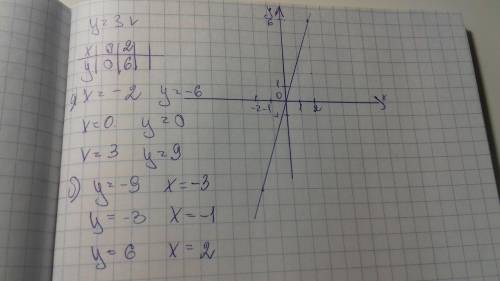 y=3x
x 0 2
y 0 6
а) x=-2 y=-6
x=0 y=0
x=3 y=9
б) y=-9 x=-3
y=-3 x=-1
y=6 x=2
y
6
1
0
-2 -1 1 2 x